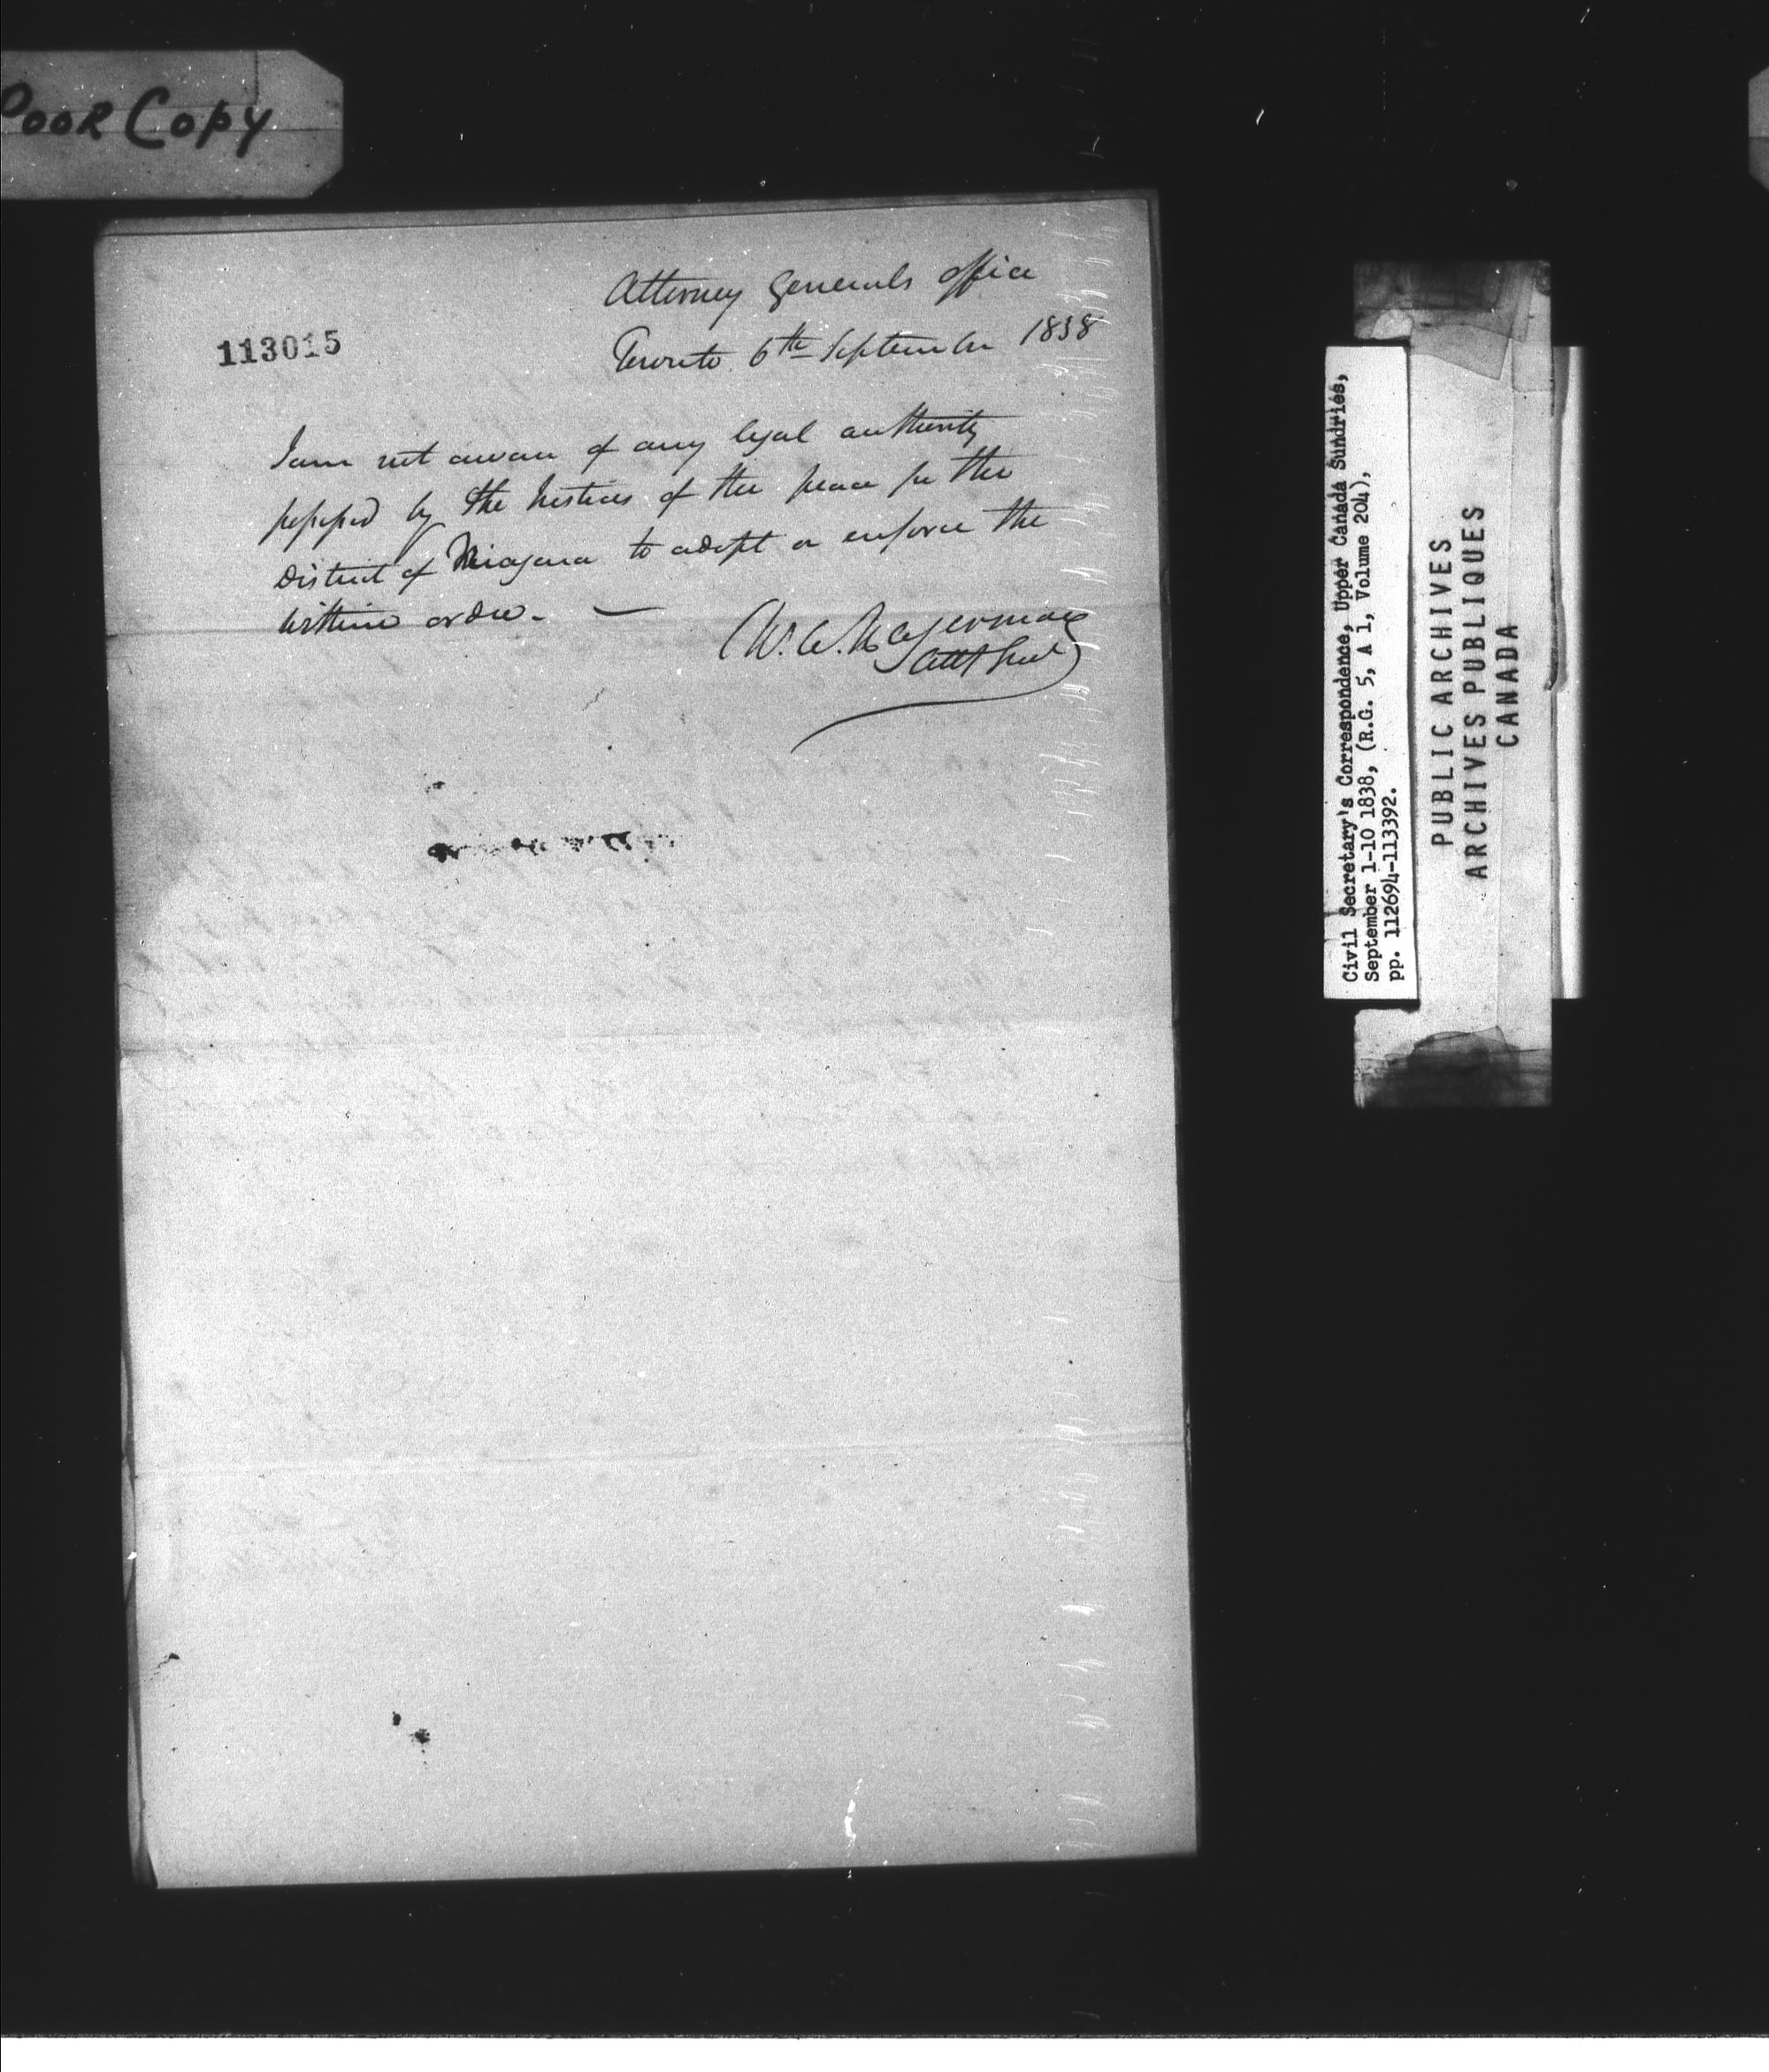 Poor Copy
Attorney Generals office
113015
Toronto 6th September 1838
I am not aware of any legal authority
possessed by the Justices of the peace for the
District of Niagara to adopt or enforce the
within order. —
C. A. Hagerman
Att Genl
Civil Secretary's Correspondence, Upper Canada Sundries,
September 1-10 1838, (R.G. 5, A 1, Volume 204),
pp. 112694-113392.
PUBLIC ARCHIVES
ARCHIVES PUBLIQUES
CANADA